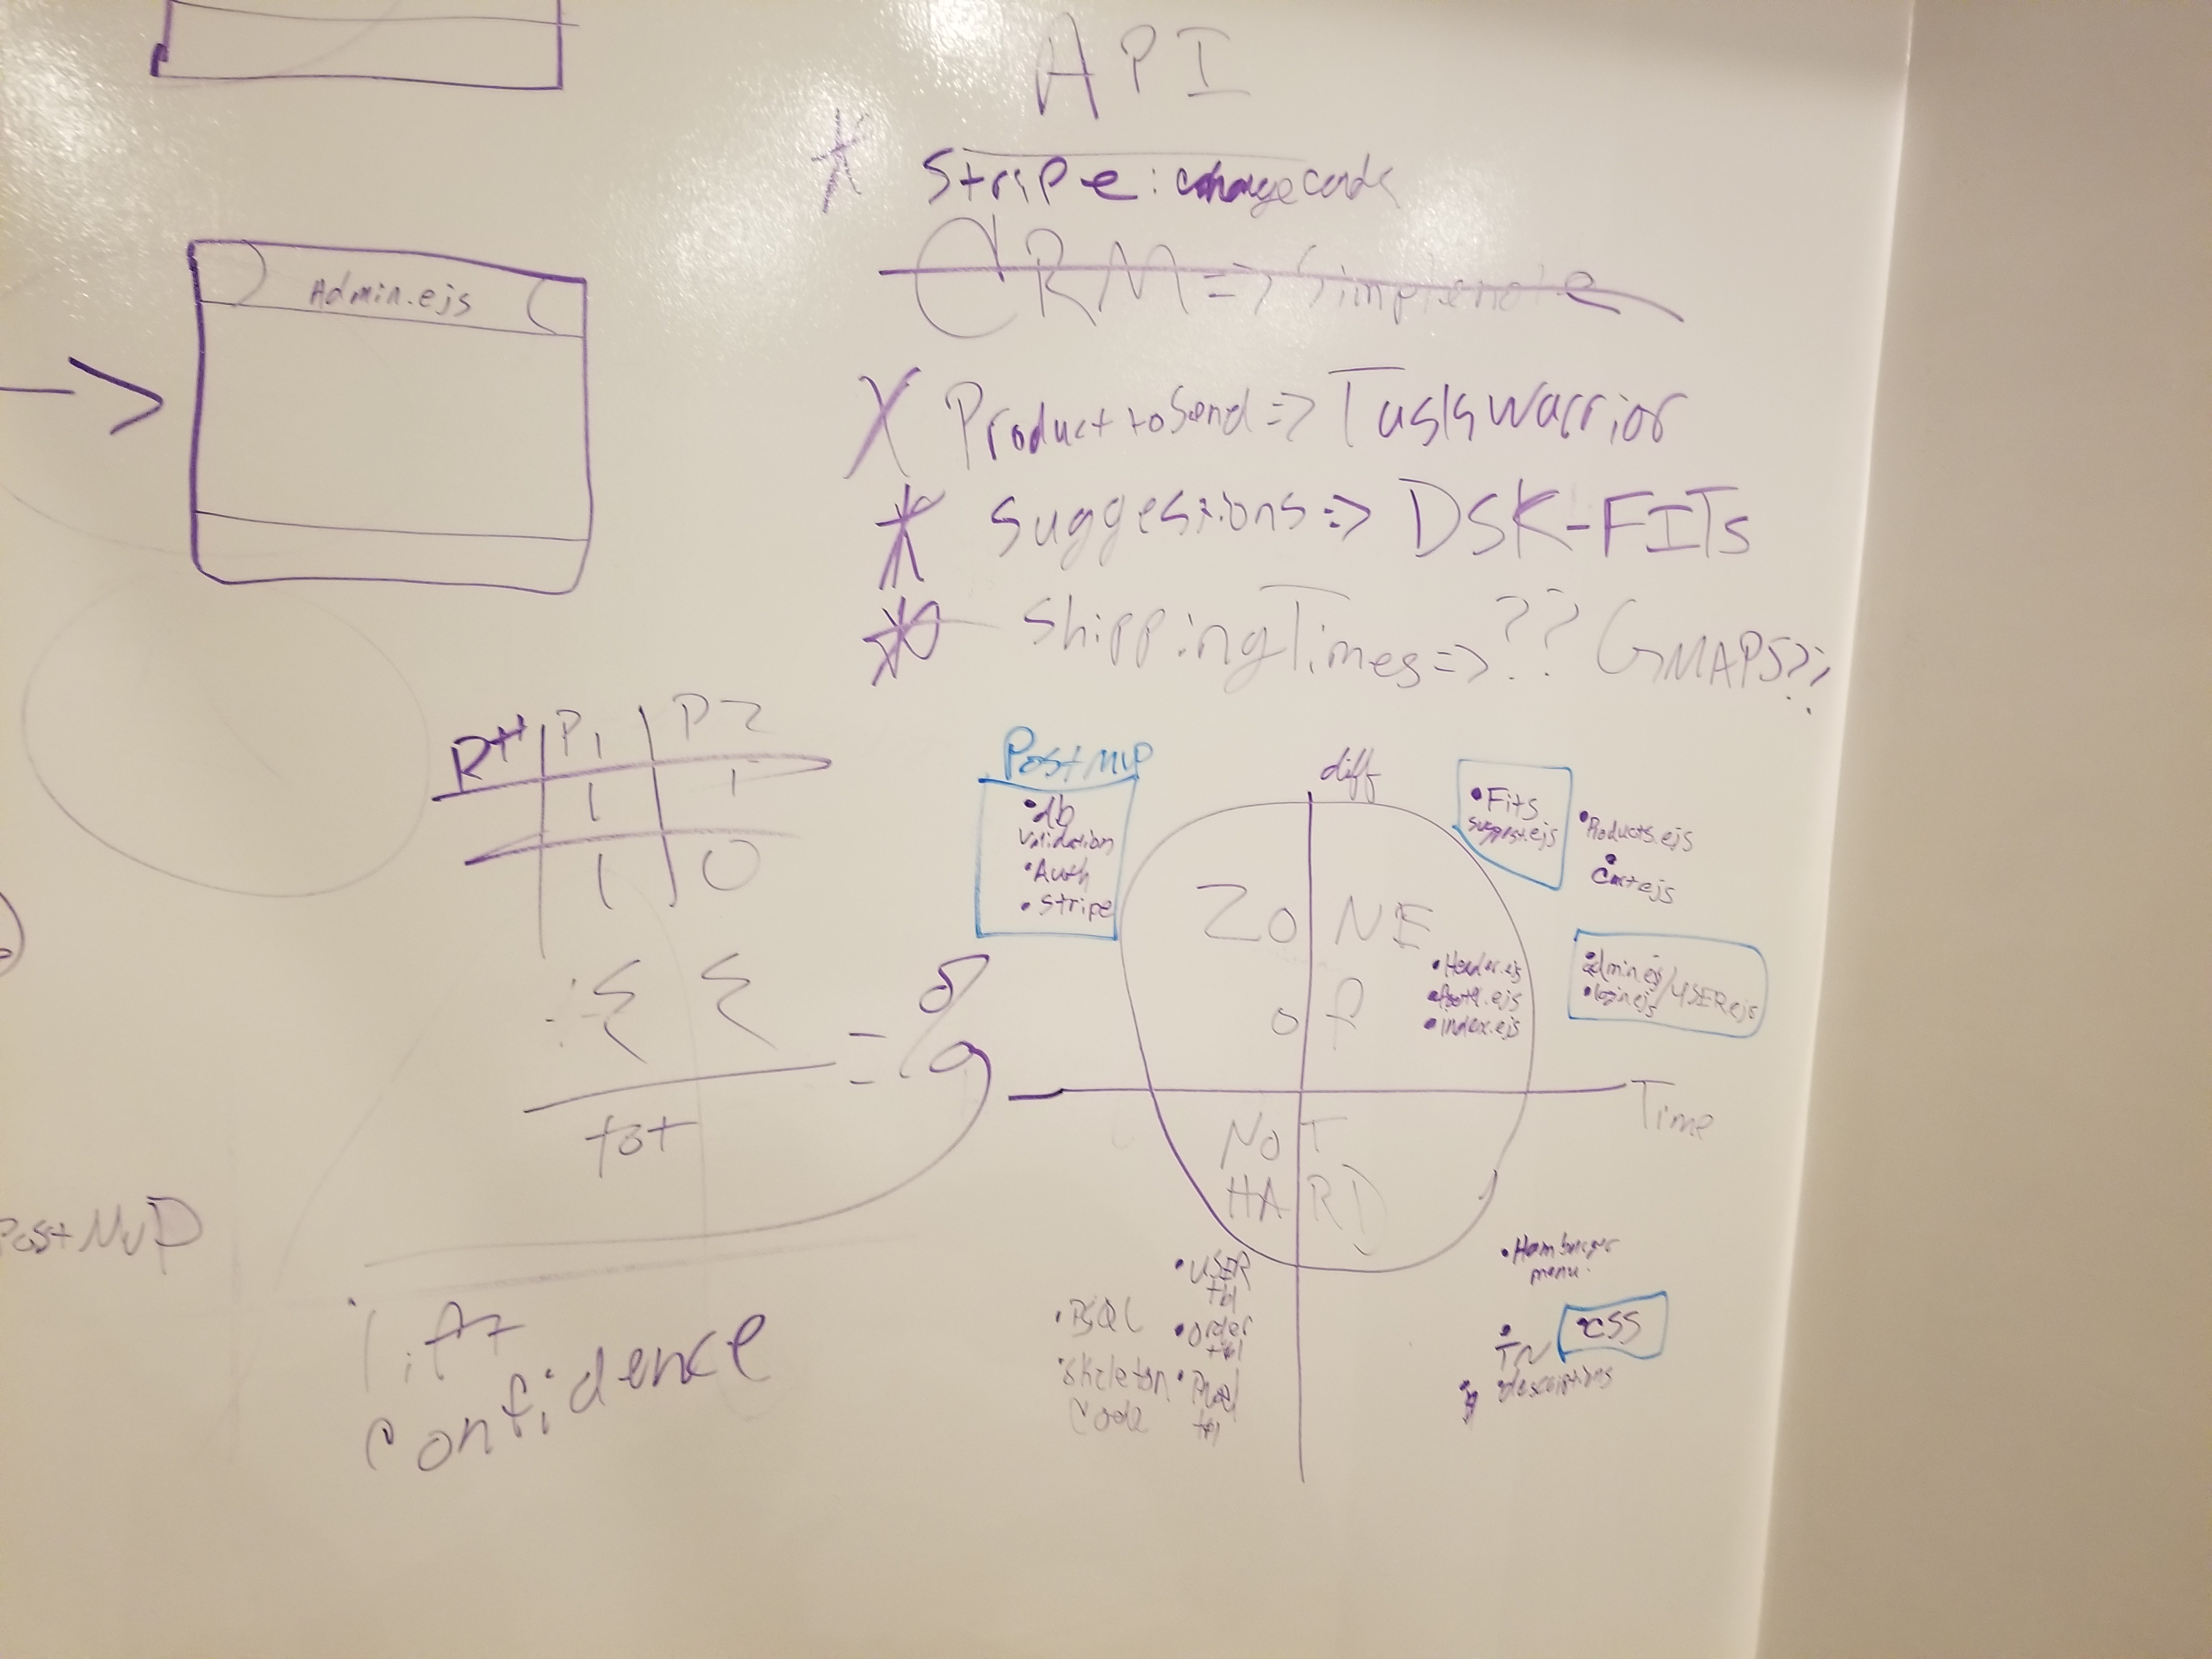 API
Stripe: charge cards
CRM => Simplenote
X Product to Send => Taskwarrior
* Suggestions => DSK-FITs
* Shipping Times => ?? GMAPS??
Admin.ejs
R# P1 P2
1 1
1 0
: Σ Σ
tot
=
lift
confidence
Post MVP
Post MVP
• db
validation
• Auth
• Stripe
diff
Time
ZONE
of
NOT
HARD
• Fits
suggest.ejs
• Products.ejs
• Cart.ejs
• Header.ejs
• footer.ejs
• index.ejs
• admin.ejs/USER.ejs
• login.ejs
• USER
tbl
• PSQL
• order
tbl
• Skeleton
Code
• Prod
tbl
• Hamburger
menu
• CSS
• TN
descriptions